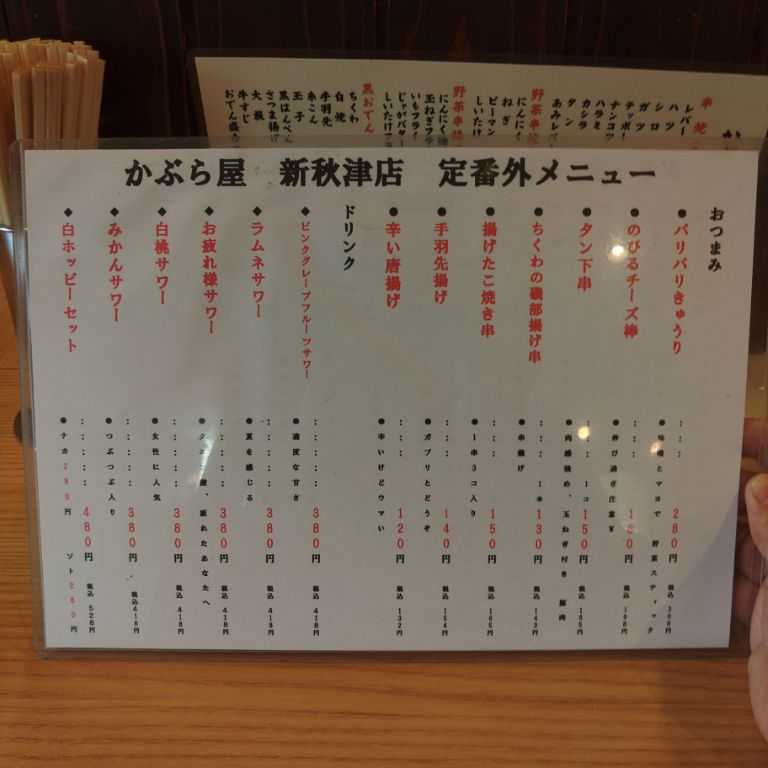 かぶら屋 新秋津店 定番外メニュー
おつまみ
●パリパリきゅうり
280円
●味噌とマヨで 野菜スティック
●のびるチーズ棒
●伸び過ぎ注意!!
●タン下串
1コ150円 税込165円
●肉感強め、玉ねぎ付き 豚肉
●ちくわの磯部揚げ串
1本130円 税込143円
●串揚げ
●揚げたこ焼き串
150円 税込165円
●1串3コ入り
●手羽先揚げ
140円 税込154円
●ガブリとどうぞ
●辛い唐揚げ
120円 税込132円
●辛いけどウマい
ドリンク
◆ピンクグレープフルーツサワー
380円 税込418円
●適度な甘さ
◆ラムネサワー
380円 税込418円
●夏を感じる
◆お疲れ様サワー
380円 税込418円
疲れたあなたへ
◆白桃サワー
380円 税込418円
●女性に人気
◆みかんサワー
380円 税込418円
●つぶつぶ入り
◆白ホッピーセット
480円 税込528円
●ナカ 円 ソト 円
串焼
レバー
ハツ
シロ
ガツ
テッポー
ナンコツ
ハラミ
カシラ
タン
あみレバ
野菜串焼
にんにく
ねぎ
ピーマン
しいたけ
野菜串揚
にんにく
玉ねぎフラ
いもフライ
じゃがバター
しいたけフラ
黒おでん
ちくわ
白焼
手羽先
糸こん
玉子
黒はんぺん
さつま揚げ
大根
牛すじ
おでん盛